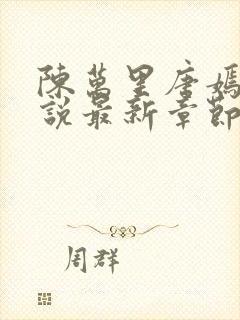 陳萬里唐嫣
說最新章節
周群